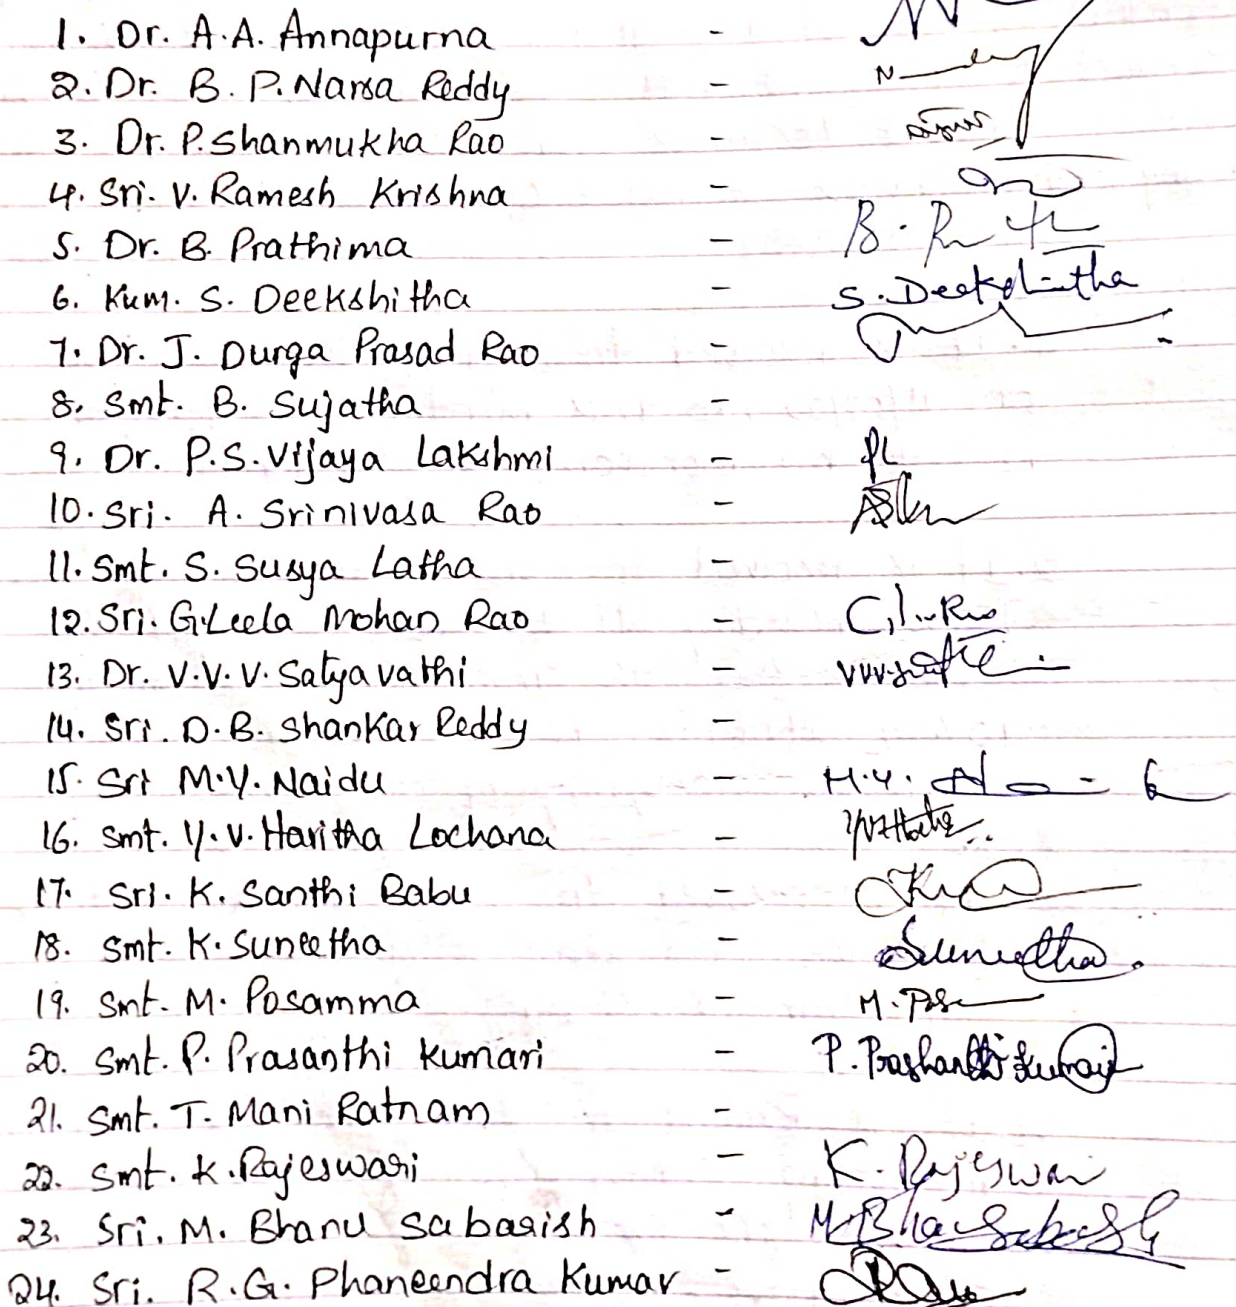 1. Dr. A.A. Annapurna -
2. Dr. B. P. Narsa Reddy -
3. Dr. P. Shanmukha Rao -
4. Sri. V. Ramesh Krishna -
5. Dr. B. Prathima -
6. Kum. S. Deekshitha - S. Deekshitha
7. Dr. J. Durga Prasad Rao -
8. Smt. B. Sujatha -
9. Dr. P.S. Vijaya Lakshmi -
10. Sri. A. Srinivasa Rao -
11. Smt. S. Susya Latha -
12. Sri. G. Leela Mohan Rao -
13. Dr. V.V.V. Satyavathi -
14. Sri. D.B. Shankar Reddy -
15. Sri M.Y. Naidu - M.Y.
16. Smt. Y.V. Haritha Lochana -
17. Sri. K. Santhi Babu -
18. Smt. K. Suneetha - Suneetha
19. Smt. M. Posamma -
20. Smt. P. Prasanthi Kumari - P. Prashanthi Kumari
21. Smt. T. Mani Ratnam -
22. Smt. K. Rajeswari - K. Rajeswari
23. Sri. M. Bhanu Sabarish -
24. Sri. R.G. Phaneendra Kumar -